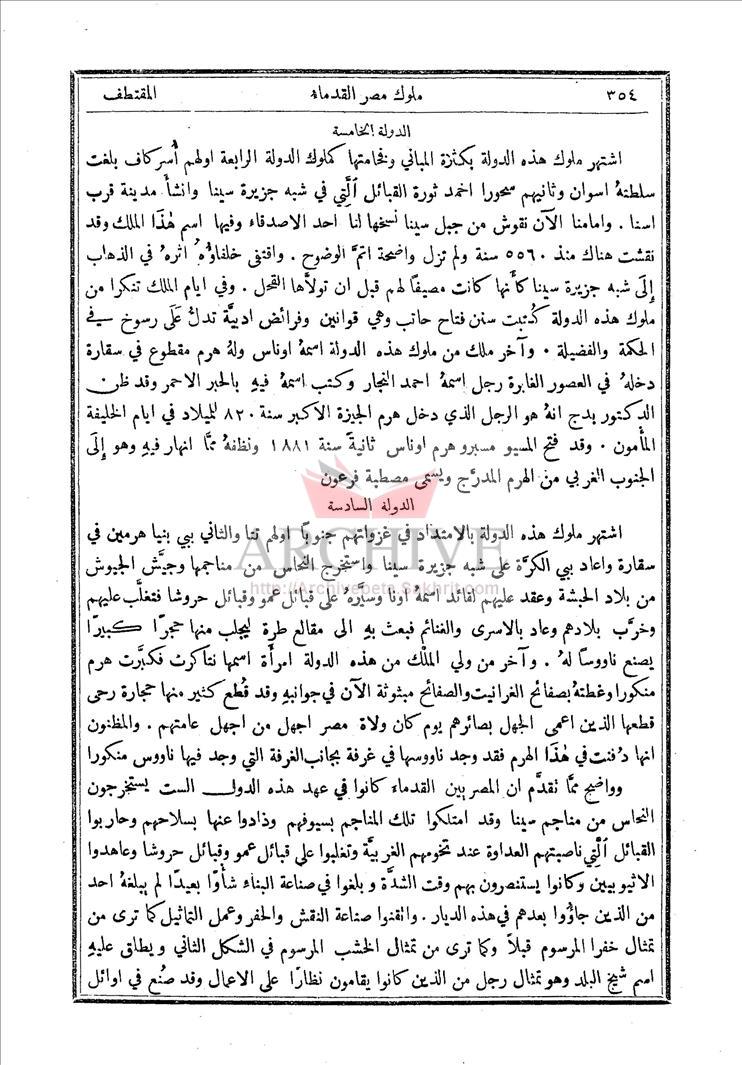 ٣٥٤ ملوك مصر القدماء المقتطف
الدولة الخامسة
اشتهر ملوك هذه الدولة بكثرة المباني وفخامتها كملوك الدولة الرابعة اولهم أُسركاف بلغت
سلطتهُ اسوان وثانيهم سحورا اخمد ثورة القبائل الَّتِي في شبه جزيرة سينا وانشأَ مدينة قرب
اسنا . وامامنا الآن نقوش من جبل سينا نسخها لنا احد الاصدقاء وفيها اسم هٰذَا الملك وقد
نقشت هناك منذ ٥٥٦٠ سنة ولم تزل واضحة اتمَّ الوضوح . واقتفى خلفاؤهُ اثرهُ في الذهاب
إِلَى شبه جزيرة سينا كأَنها كانت مصيفًا لهم قبل ان تولاَّها القحل . وفي ايام الملك تنكرا من
ملوك هذه الدولة كُتبت سنن فتاح حاتب وهي قوانين وفرائض ادبيَّة تدلُّ عَلَى رسوخ في
الحكمة والفضيلة . وآخر ملك من ملوك هذه الدولة اسمهُ اوناس ولهُ هرم مقطوع في سقارة
دخلهُ في العصور الغابرة رجل اسمهُ احمد النجار وكتب اسمهُ فيهِ بالحبر الاحمر وقد ظن
الدكتور بدج انهُ هو الرجل الذي دخل هرم الجيزة الاكبر سنة ٨٢٠ للميلاد في ايام الخليفة
المأْمون . وقد فتح المسيو مسبرو هرم اوناس ثانيةً سنة ١٨٨١ ونظفهُ ممَّا انهار فيهِ وهو إِلَى
الجنوب الغربي من الهرم المدرَّج ويسمى مصطبة فرعون
الدولة السادسة
اشتهر ملوك هذه الدولة بالامتداد في غزواتهم جنوبًا اولهم تتا والثاني ببي بنيا هرمين في
سقارة واعاد ببي الكرَّة على شبه جزيرة سينا واستخرج النحاس من مناجمها وجيَّش الجيوش
من بلاد الحبشة وعقد عليهم لقائد اسمهُ اونا وسيَّرهُ على قبائل عمو وقبائل حروشا فتغلَّب عليهم
وخرَّب بلادهم وعاد بالاسرى والغنائم فبعث بهِ الى مقالع طرة ليجلب منها حجرًا كبيرًا
يصنع ناووسًا لهُ . وآخر من ولي الملْك من هذه الدولة امرأَة اسمها نتأكرت فكبَّرت هرم
منكورا وغطتهُ بصفائح الغرانيت والصفائح مبثوثة الآن في جوانبهِ وقد قُطع كثير منها حجارة رحى
قطعها الذين اعمى الجهل بصائرهم يوم كان ولاة مصر اجهل من اجهل عامتهم . والمظنون
انها دُفنت في هٰذَا الهرم فقد وجد ناووسها في غرفة بجانب الغرفة التي وجد فيها ناووس منكورا
وواضح ممَّا تقدَّم ان المصريين القدماء كانوا في عهد هذه الدول الست يستخرجون
النحاس من مناجم سينا وقد امتلكوا تلك المناجم بسيوفهم وذادوا عنها بسلاحهم وحاربوا
القبائل الَّتِي ناصبتهم العداوة عند تخومهم الغربيَّة وتغلبوا على قبائل عمو وقبائل حروشا وعاهدوا
الاثيوبيين وكانوا يستنصرون بهم وقت الشدَّة و بلغوا في صناعة البناء شأْوًا بعيدًا لم يبلغهُ احد
من الذين جاؤُوا بعدهم في هذه الديار . واتقنوا صناعة النقش والحفر وعمل التماثيل كما ترى من
تمثال خفرا المرسوم قبلاً وكما ترى من تمثال الخشب المرسوم في الشكل الثاني و يطلق عليهِ
اسم شيخ البلد وهو تمثال رجل من الذين كانوا يقامون نظارًا على الاعمال وقد صُنع في اوائل
ARCHIVE
http://Archivebeta.Sakhrit.com